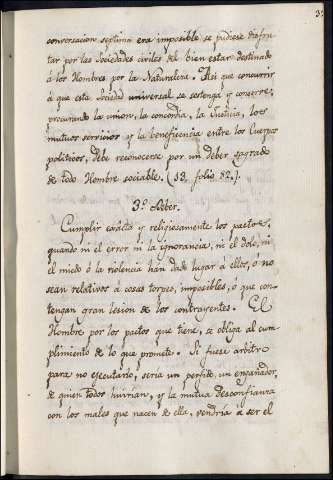 conversacion septima era imposible se pudiese disfru-
tar por las Sociedades civiles del bien estar destinado
á los Hombres por la Naturaleza. Asi que concurrir
á que esta Sociedad universal se sostenga y conserve,
procurando la union, la concordia, la Justicia, los
mutuos servicios y la beneficencia entre los Cuerpos
politicos, debe reconocerse por un deber sagrado
de todo Hombre sociable. (13, folio 82.).
3.º Deber.
Cumplir exâcta y religiosamente los pactos,
quando ni el error ni la ignorancia, ni el dolo, ni
el miedo ó la violencia han dado lugar á ellos, ó no
sean relativos á cosas torpes, imposibles, ó que con-
tengan gran lesion de los contrayentes. El
Hombre por los pactos que tiene, se obliga al cum-
plimiento de lo que promete. Si fuese arbitro
para no executarlo, seria un perfido, un engañador,
de quien todos huirian, y la mutua desconfianza
con los males que nacen de ella, vendria á ser el